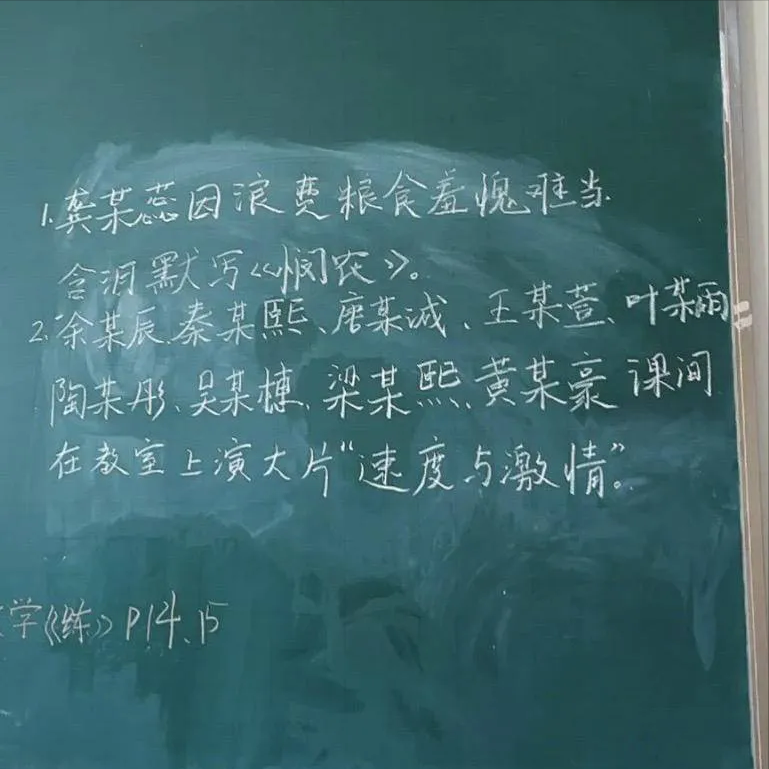 1.龚某蕊因浪费粮食羞愧难当
含泪默写《悯农》。
2.余某辰、秦某熙、唐某诚、王某萱、叶某雨
陶某彤、吴某穗、梁某熙、黄某豪 课间
在教室上演大片“速度与激情”。
学《练》P14、15